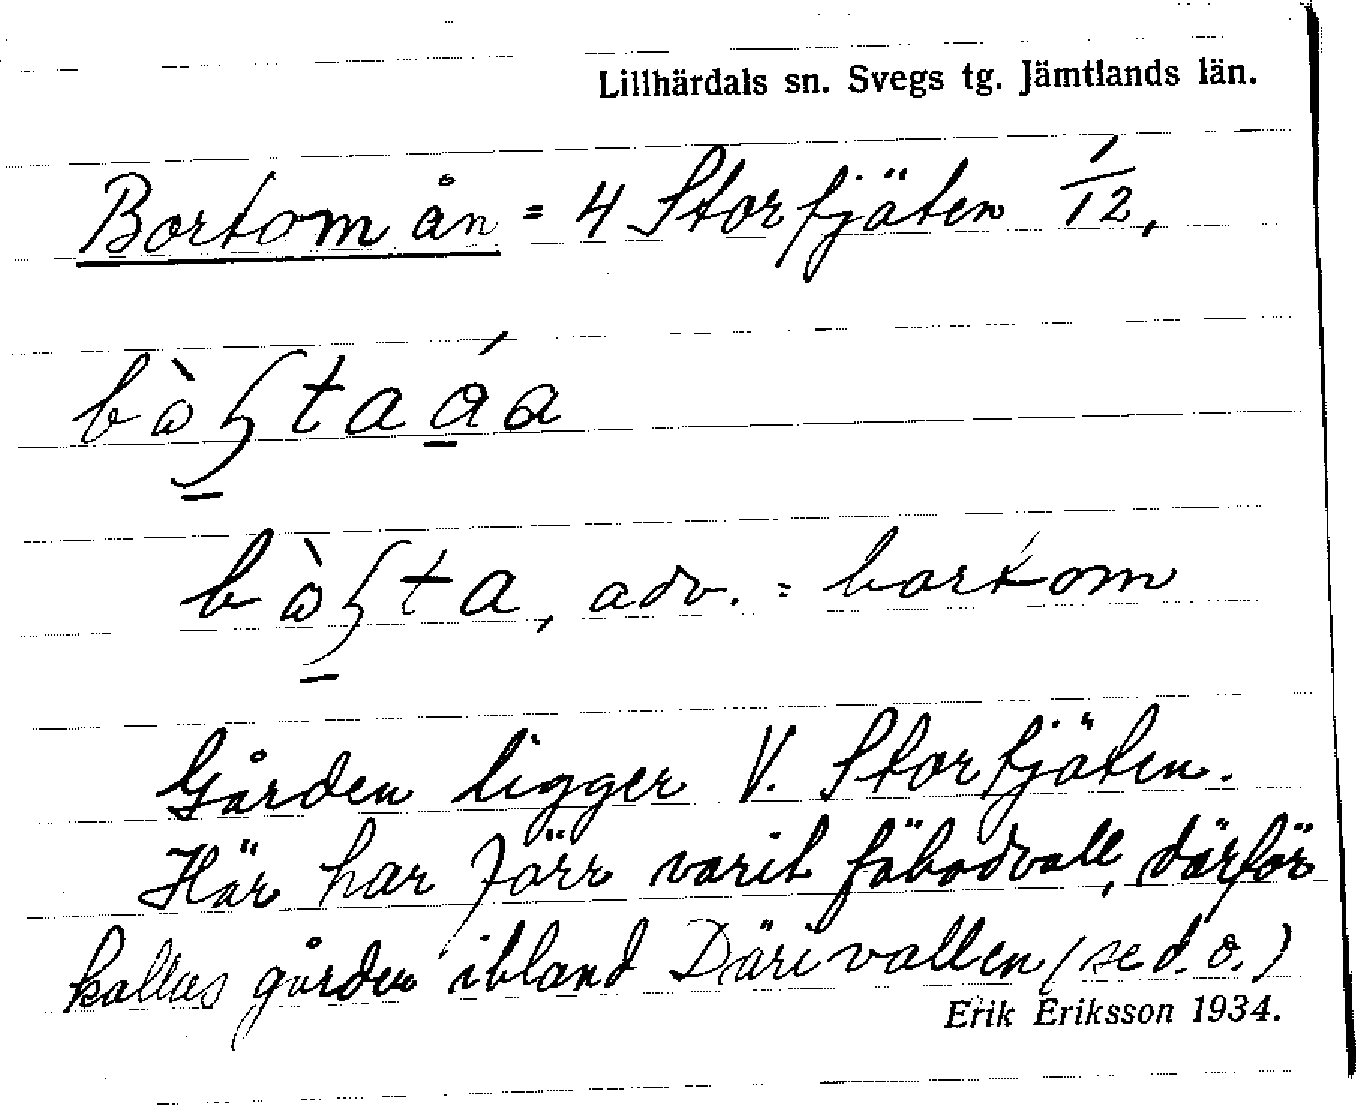 Lillhärdals sn. Svegs tg. Jämtlands län.
Bortom ån = 4 Storfjäten 1/12,
bòʂta áa
bòʂta, adv. = bortom
Gården ligger V. Storfjäten.
Här har förr varit fäbodvall, därför
kallas gården ibland Däri vallen (se d. o.)
Erik Eriksson 1934.